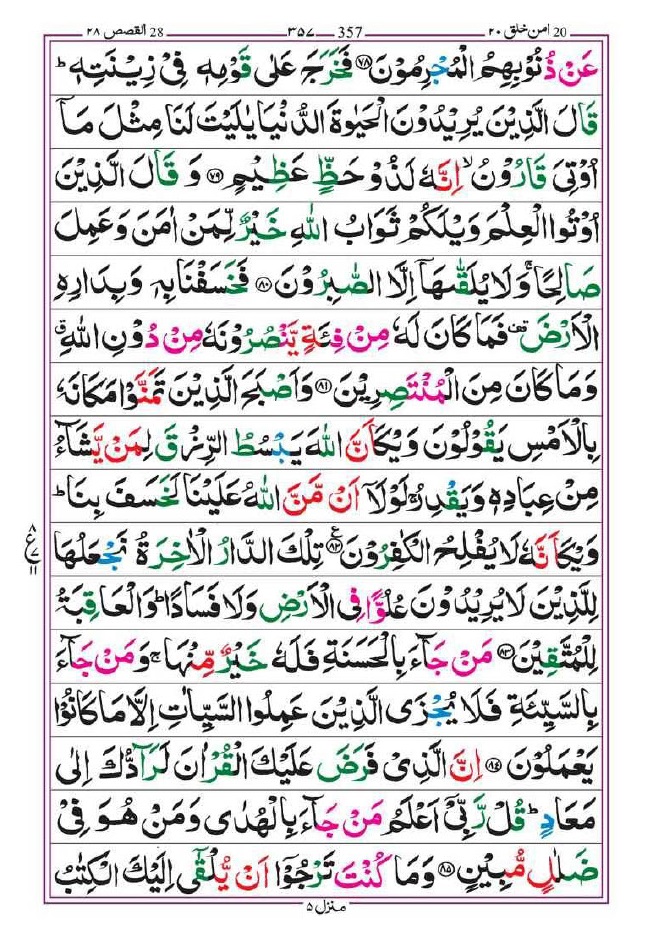 20 امن خلق ۲۰ 357 ۳۵۷ 28 القصص ۲۸
عَنْ ذُنُوْبِهِمُ الْمُجْرِمُوْنَ ۝۷۸ فَخَرَجَ عَلٰى قَوْمِهٖ فِیْ زِیْنَتِهٖ ؕ
قَالَ الَّذِیْنَ یُرِیْدُوْنَ الْحَیٰوةَ الدُّنْیَا یٰلَیْتَ لَنَا مِثْلَ مَاۤ
اُوْتِیَ قَارُوْنُ ۙ اِنَّهٗ لَذُوْ حَظٍّ عَظِیْمٍ ۝۷۹ وَ قَالَ الَّذِیْنَ
اُوْتُوا الْعِلْمَ وَیْلَكُمْ ثَوَابُ اللّٰهِ خَیْرٌ لِّمَنْ اٰمَنَ وَعَمِلَ
صَالِحًا ۚ وَلَا یُلَقّٰىهَاۤ اِلَّا الصّٰبِرُوْنَ ۝۸۰ فَخَسَفْنَا بِهٖ وَبِدَارِهِ
الْاَرْضَ ۫ فَمَا كَانَ لَهٗ مِنْ فِئَةٍ یَّنْصُرُوْنَهٗ مِنْ دُوْنِ اللّٰهِ ۗ
وَمَا كَانَ مِنَ الْمُنْتَصِرِیْنَ ۝۸۱ وَاَصْبَحَ الَّذِیْنَ تَمَنَّوْا مَكَانَهٗ
بِالْاَمْسِ یَقُوْلُوْنَ وَیْكَاَنَّ اللّٰهَ یَبْسُطُ الرِّزْقَ لِمَنْ یَّشَآءُ
مِنْ عِبَادِهٖ وَیَقْدِرُ ۚ لَوْلَاۤ اَنْ مَّنَّ اللّٰهُ عَلَیْنَا لَخَسَفَ بِنَا ؕ
وَیْكَاَنَّهٗ لَا یُفْلِحُ الْكٰفِرُوْنَ ۝۸۲ تِلْكَ الدَّارُ الْاٰخِرَةُ نَجْعَلُهَا
لِلَّذِیْنَ لَا یُرِیْدُوْنَ عُلُوًّا فِی الْاَرْضِ وَلَا فَسَادًا ؕ وَالْعَاقِبَةُ
لِلْمُتَّقِیْنَ ۝۸۳ مَنْ جَآءَ بِالْحَسَنَةِ فَلَهٗ خَیْرٌ مِّنْهَا ۚ وَمَنْ جَآءَ
بِالسَّیِّئَةِ فَلَا یُجْزَى الَّذِیْنَ عَمِلُوا السَّیِّاٰتِ اِلَّا مَا كَانُوْا
یَعْمَلُوْنَ ۝۸۴ اِنَّ الَّذِیْ فَرَضَ عَلَیْكَ الْقُرْاٰنَ لَرَآدُّكَ اِلٰى
مَعَادٍ ؕ قُلْ رَّبِّیْۤ اَعْلَمُ مَنْ جَآءَ بِالْهُدٰى وَمَنْ هُوَ فِیْ
ضَلٰلٍ مُّبِیْنٍ ۝۸۵ وَمَا كُنْتَ تَرْجُوْۤا اَنْ یُّلْقٰۤى اِلَیْكَ الْكِتٰبُ
منزل ۵